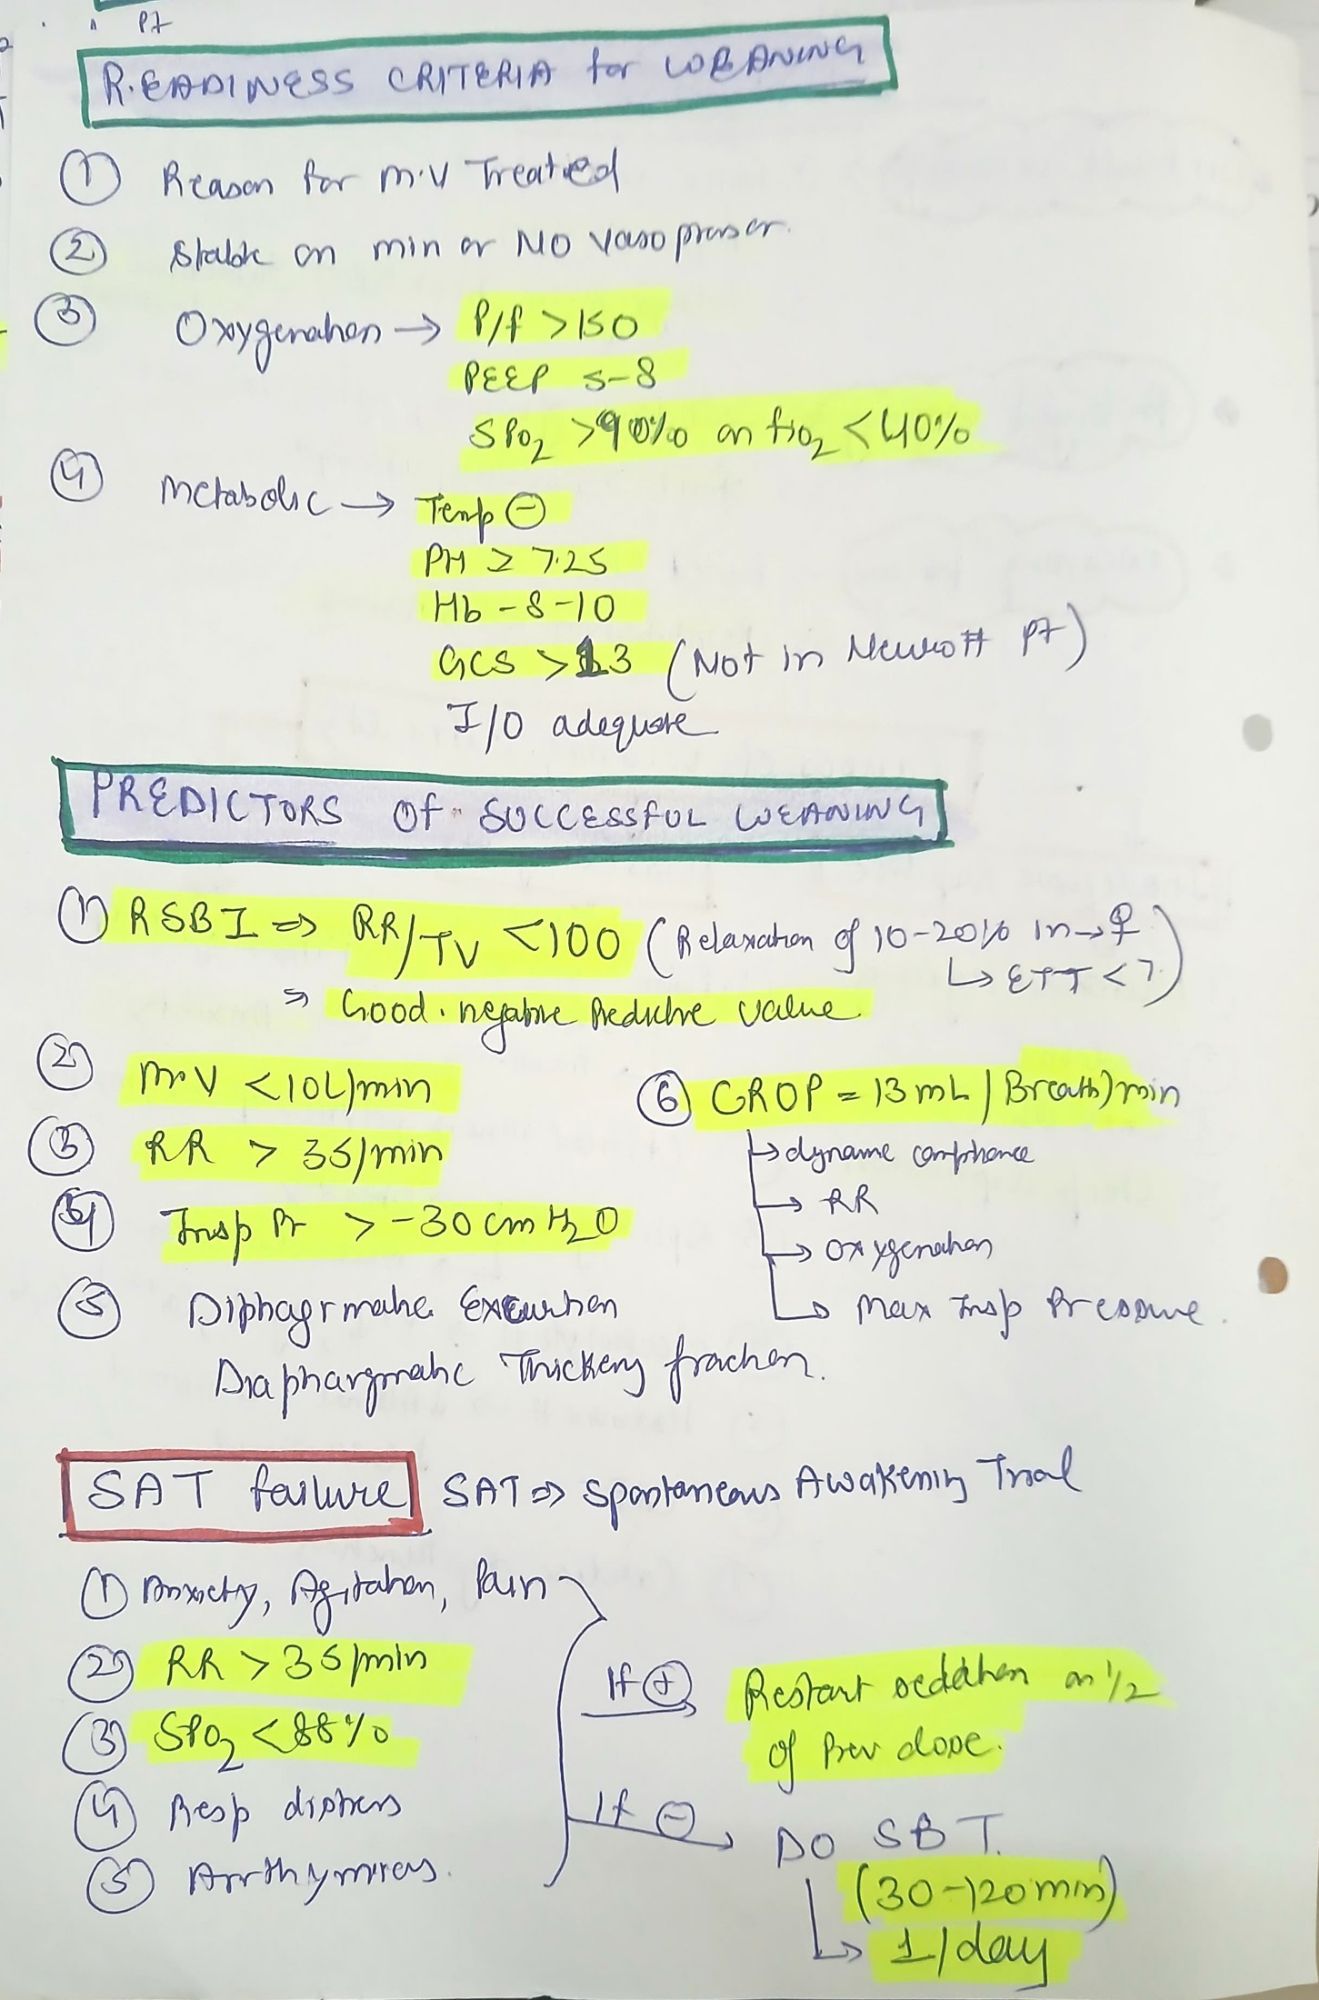 Pt
READINESS CRITERIA for WEANING
① Reason for M.V Treated
② Stable on min or NO vasopressor.
③ Oxygenation → P/f >150
PEEP 5-8
SPO2 >90% on fio2 <40%
④ Metabolic → Temp ⊖
PH ≥ 7.25
Hb - 8-10
GCS >13 (Not in Neuro# Pt)
I/O adequate
PREDICTORS Of SUCCESSFUL WEANING
① RSBI ⇒ RR/TV <100 (Relaxation of 10-20% in → ♀
↳ ETT <7)
⇒ Good negative Predictive value.
② M.V <10L/min
③ RR > 35/min
④ Insp Pr > -30 cm H2O
⑤ Diphagrmatic Excurtion
Diaphargmatic Thickeng fraction.
⑥ CROP = 13 mL / Breath/min
→ dynamc compliance
→ RR
→ Oxygenation
→ Max Insp Pressure.
SAT failure SAT ⇒ Spontaneous Awakening Trial
① Anxiety, Agitation, Pain
② RR > 35/min
③ SPO2 <88%
④ Resp distress
⑤ Arrthymieas.
If ⊕ Restart sedation on 1/2
of Prev dose.
If ⊖ → DO SBT.
(30-120 min)
↳ 1/day